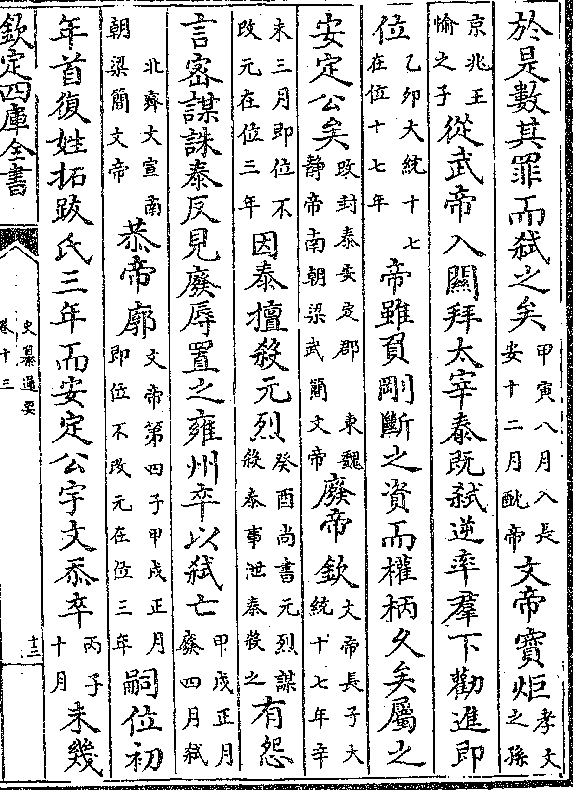 於是數其罪而弑之矣甲寅八月入長安十二月酖帝文帝寶炬孝文之孫
京兆王愉之子從武帝入關拜太宰泰既弑逆率羣下勸進即
位乙卯大統十七在位十七年帝雖負剛斷之資而權柄久矣屬之
安定公矣改封泰安定郡東魏静帝南朝梁武簡文帝廢帝欽文帝長子大統十七年辛
未三月即位不改元在位三年因泰擅殺元烈癸酉尚書元烈謀殺泰事泄泰殺之有怨
言密謀誅泰反見廢辱置之雍州卒以弑亡甲戌正月廢四月弑
北齊大宣南朝梁簡文帝恭帝廓文帝第四子甲戌正月即位不改元在位三年嗣位初
年首復姓拓跋氏三年而安定公宇文泰卒丙子十月未幾
欽定四庫全書
史纂通要
卷十三
十三